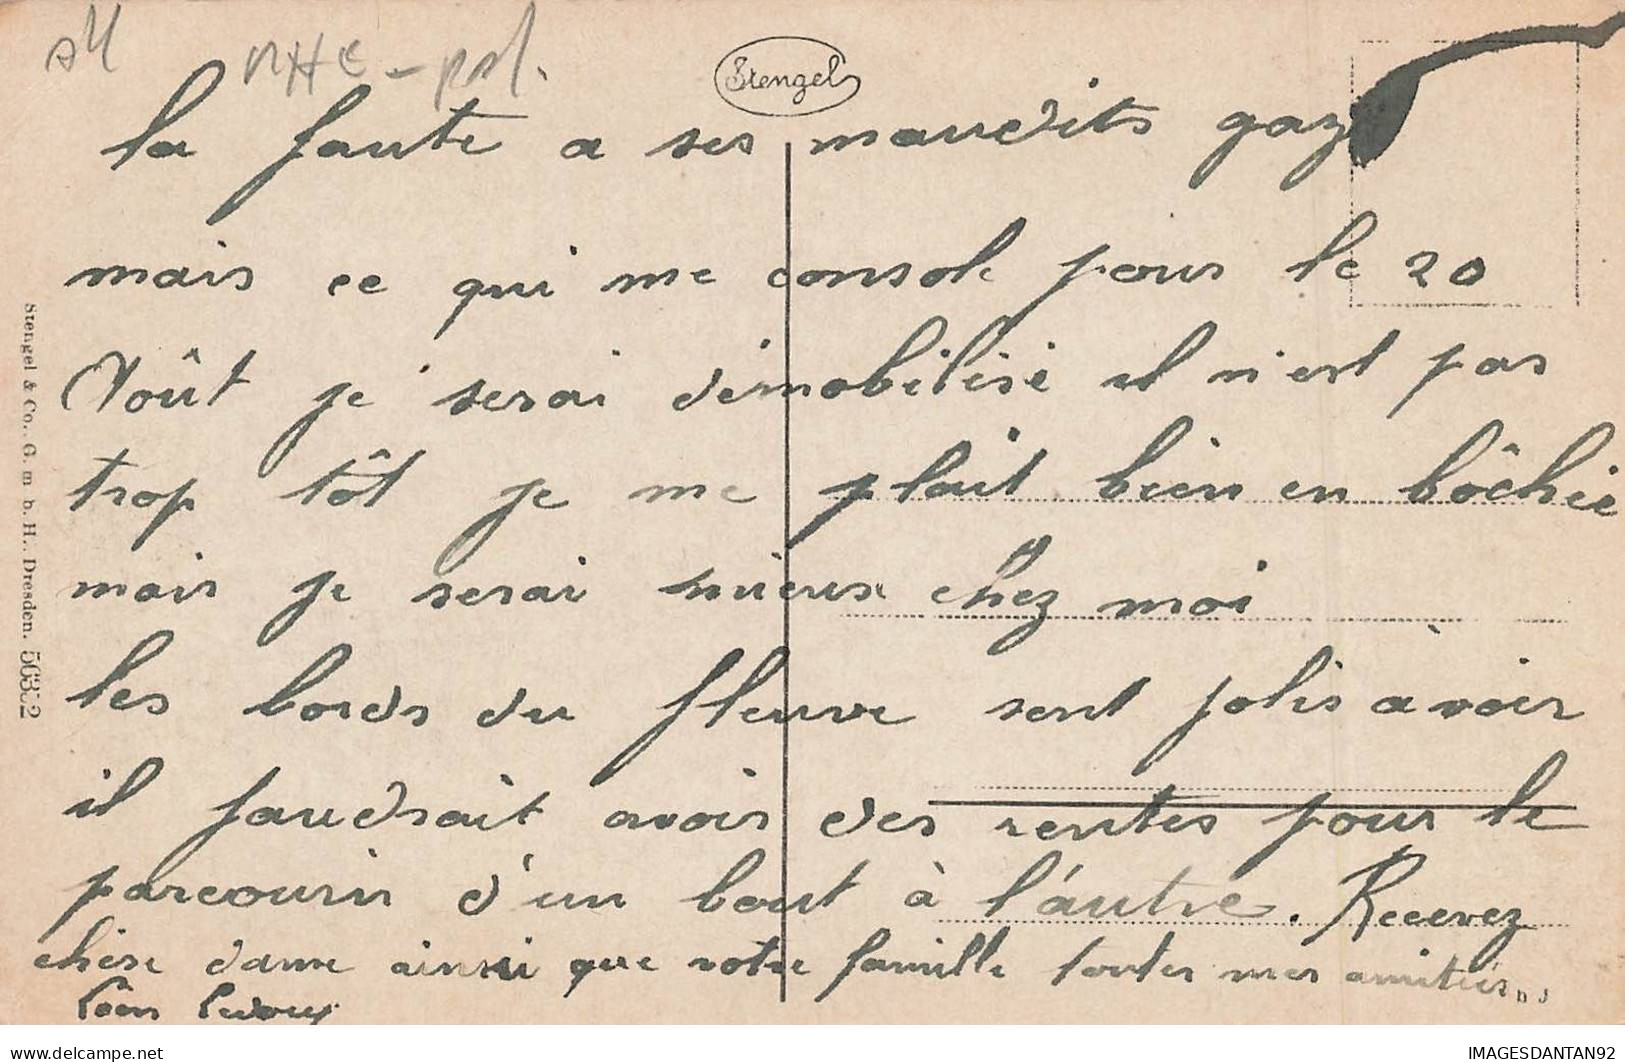 Stengel
la faute a ses maudits gaz
mais ce qui me consol pour le 20
Août je serai démobilisé il n'est pas
trop tôt je me plait bien en bôchie
mais je serai mieux chez moi
les bords du fleuve sont jolis a voir
il faudrait avoir des rentes pour le
parcourir d'un bout à l'autre. Recevez
chère dame ainsi que votre famille toutes mes amitiés...
Léon
Stengel & Co., G. m. b. H., Dresden.
IMAGESDANTAN92
delcampe.net